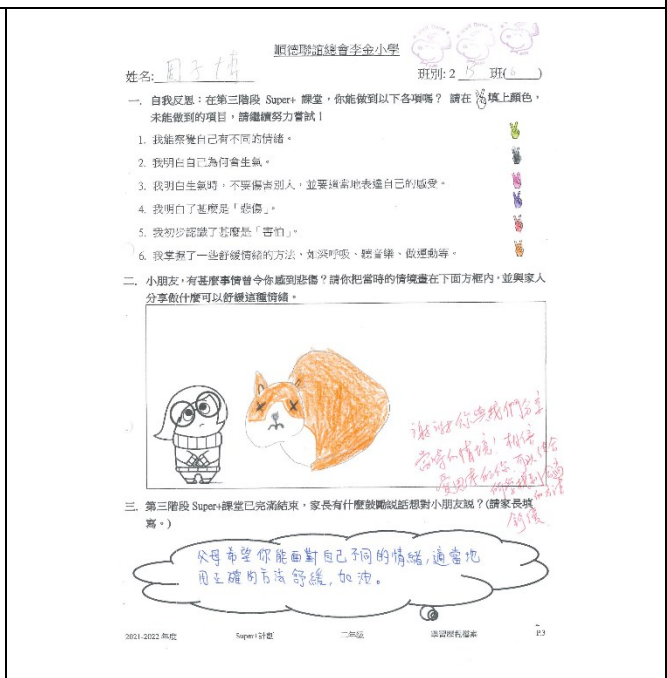 順德聯誼總會李金小學
姓名: 周子博 班別: 2 B 班(6)
一. 自我反思：在第三階段 Super+ 課堂，你能做到以下各項嗎？ 請在 填上顏色，
未能做到的項目，請繼續努力嘗試！
1. 我能察覺自己有不同的情緒。
2. 我明白自己為何會生氣。
3. 我明白生氣時，不要傷害別人，並要適當地表達自己的感受。
4. 我明白了甚麼是「悲傷」。
5. 我初步認識了甚麼是「害怕」。
6. 我掌握了一些舒緩情緒的方法，如深呼吸、聽音樂、做運動等。
二. 小朋友，有甚麼事情曾令你感到悲傷？請你把當時的情境畫在下面方框內，並與家人
分享做什麼可以舒緩這種情緒。
謝謝你與我們分享
當時的情境！相信
舒緩
三. 第三階段 Super+課堂已完滿結束，家長有什麼鼓勵說話想對小朋友說？(請家長填
寫。)
父母希望你能面對自己不同的情緒，適當地
用正確的方法舒緩，加油。
2021-2022 年度 Super+計劃 二年級 學習歷程檔案 P.3